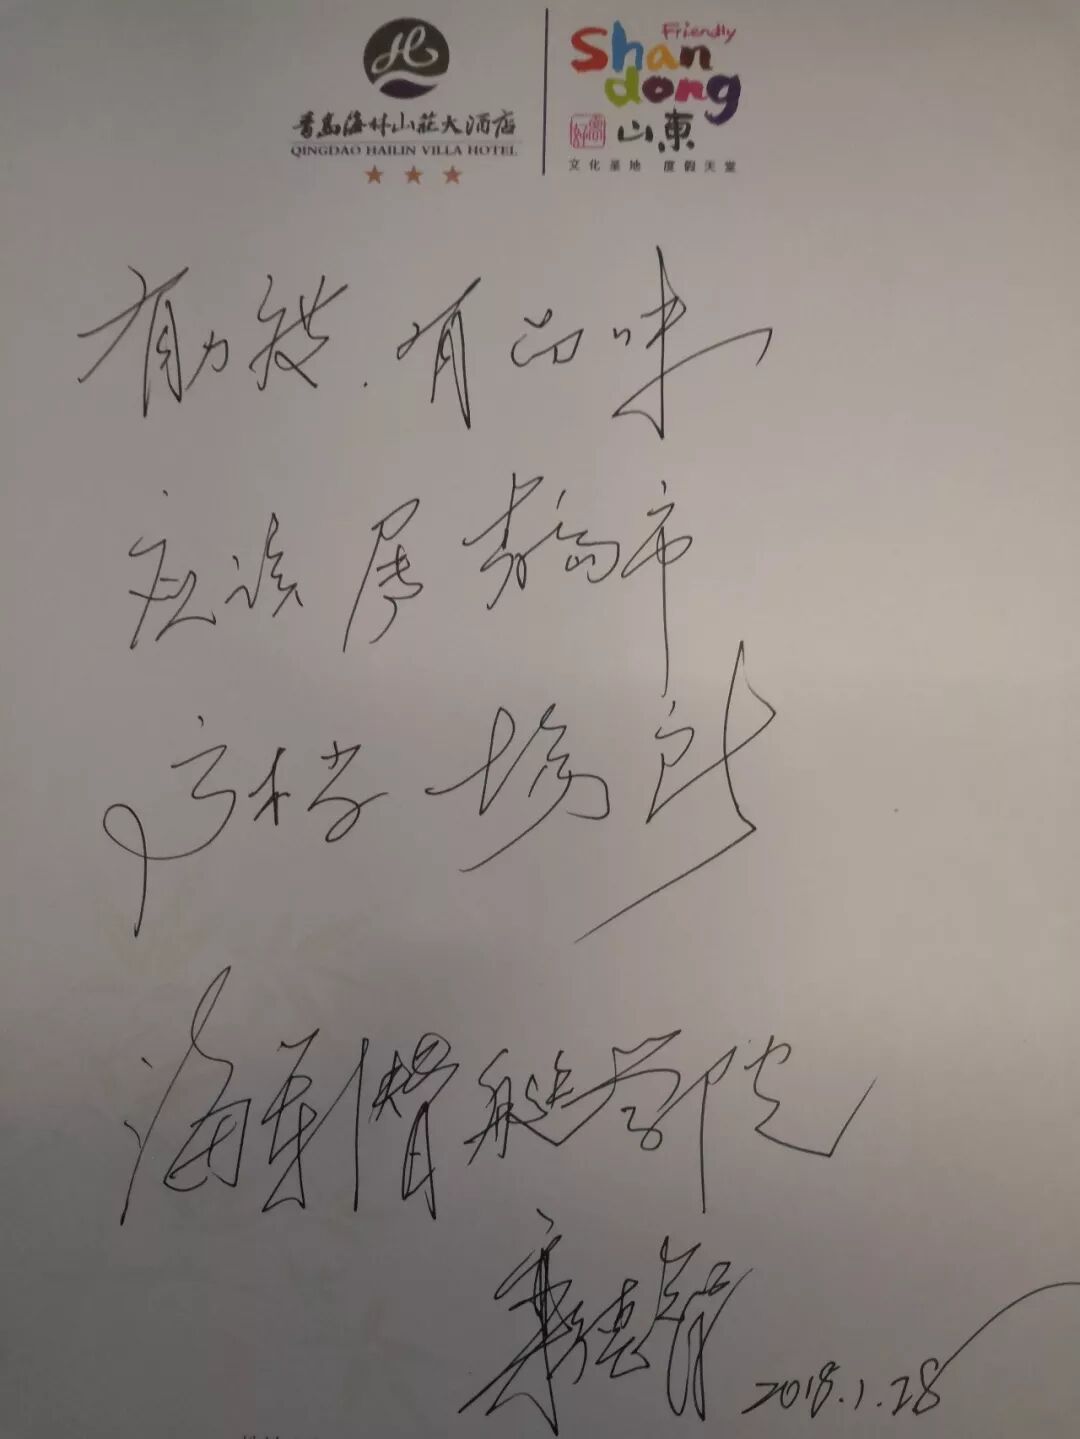 青岛海林山莊大酒店
QINGDAO HAILIN VILLA HOTEL
Friendly
Shan
dong
山東
文化圣地 度假天堂
有 有品味
应该属青岛市
高档场所
海军潜艇学院
2018.1.28